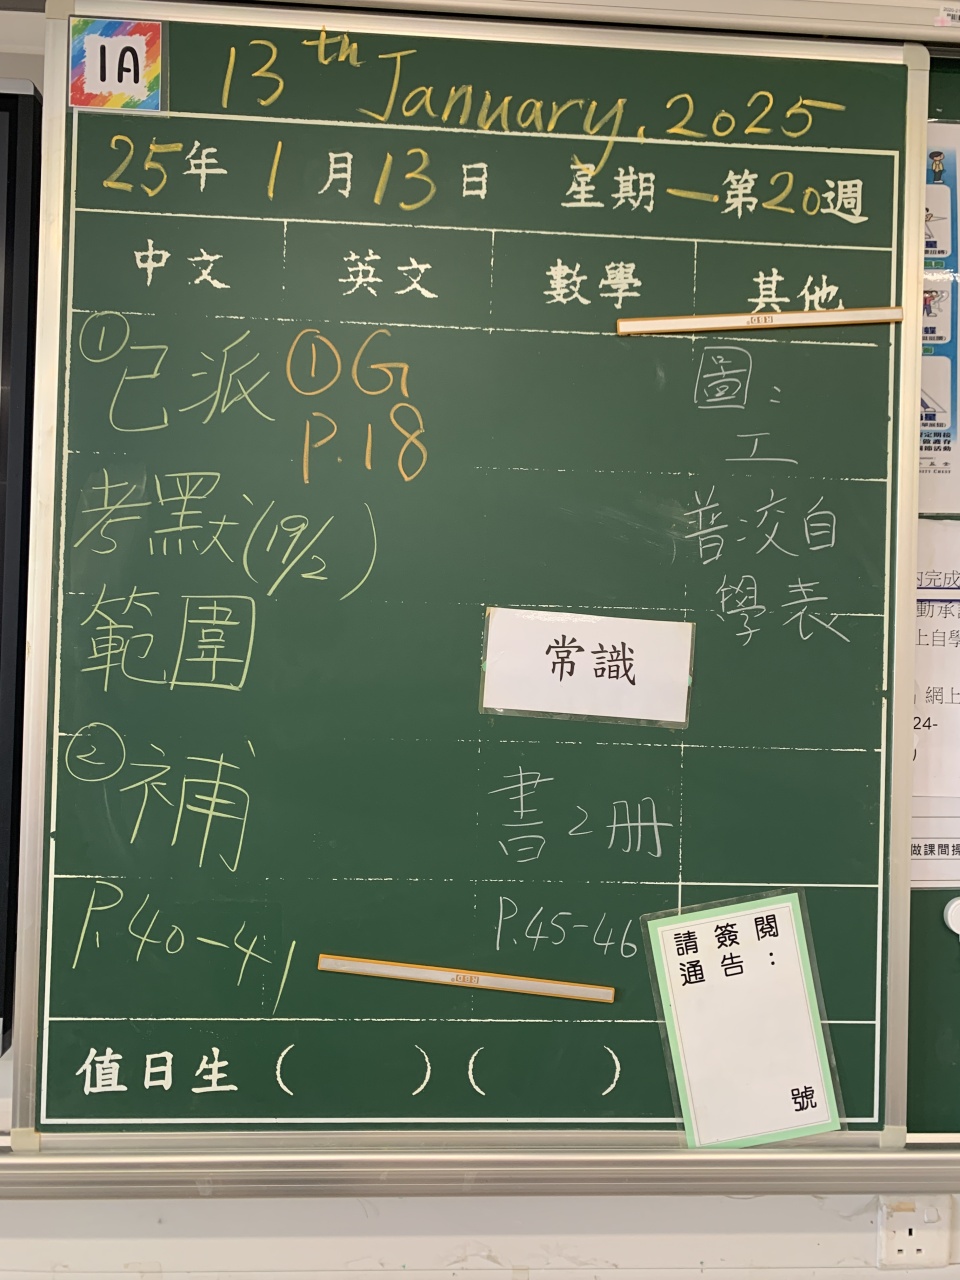 1A
13th January, 2025
25年1月13日 星期一 第20週
中文 英文 數學 其他
① 已派
考默(19/2)
範圍
② 補
P.40-41
① G
P.18
常識
書2册
P.45-46
圖：
工
普交自
學表
請簽閱
通告：
號
值日生 ( ) ( )
內完成
動承
上自學
網上
24-
做課間操